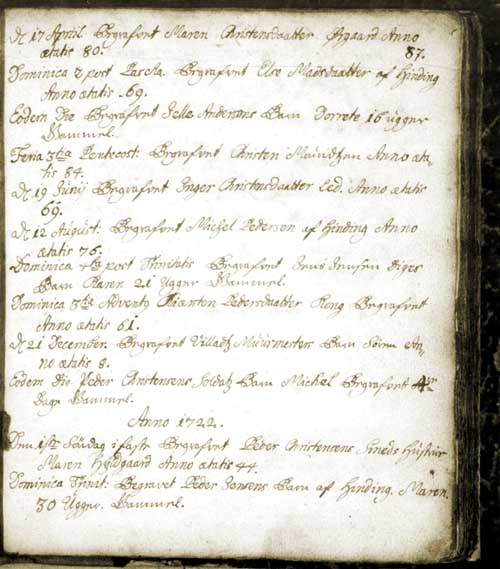 d. 17 April. Begrafvet Maren Christensdaatter Aggaard Anno
ætatis 80.
87.
Dominica 2 post Pascha. Begrafvet Else Madsdaatter af Hinding
Anno ætatis 69.
Eodem Die Begrafvet Jelle Andersens Barn Dorrete 16 ugger
Gammel.
Feria 3tia Pentecost: Begrafvet Christen Mauridtzen Anno æta-
tis 84.
d. 19 Junij Begrafvet Inger Christensdaatter Eod. Anno ætatis
69.
d. 12 August: Begrafvet Michel Pederson af Hinding Anno
ætatis 76.
Dominica 4ta post Trinitatis Begrafvet Jens Jensen
Barn Karen 21 Ugger Gammel.
Dominica 3tia Adventy Kiersten Pedersdaatter Begrafvet
Anno ætatis 61.
d. 21 December. Begrafvet Villadtz Muurmester Barn Søren An-
no ætatis 8.
Eodem Die Peder Christensens Soldatz Barn Michel Begrafvet 4re
Dage Gammel.
Anno 1722.
Den 1ste Søndag i faste Begrafvet Peder Christensens Smeds Hustrue
Maren Hyldgaard Anno ætatis 44.
Dominica Trinit: Begravet Peder Jensens Barn af Hinding. Maren.
30 Ugger. Gammel.